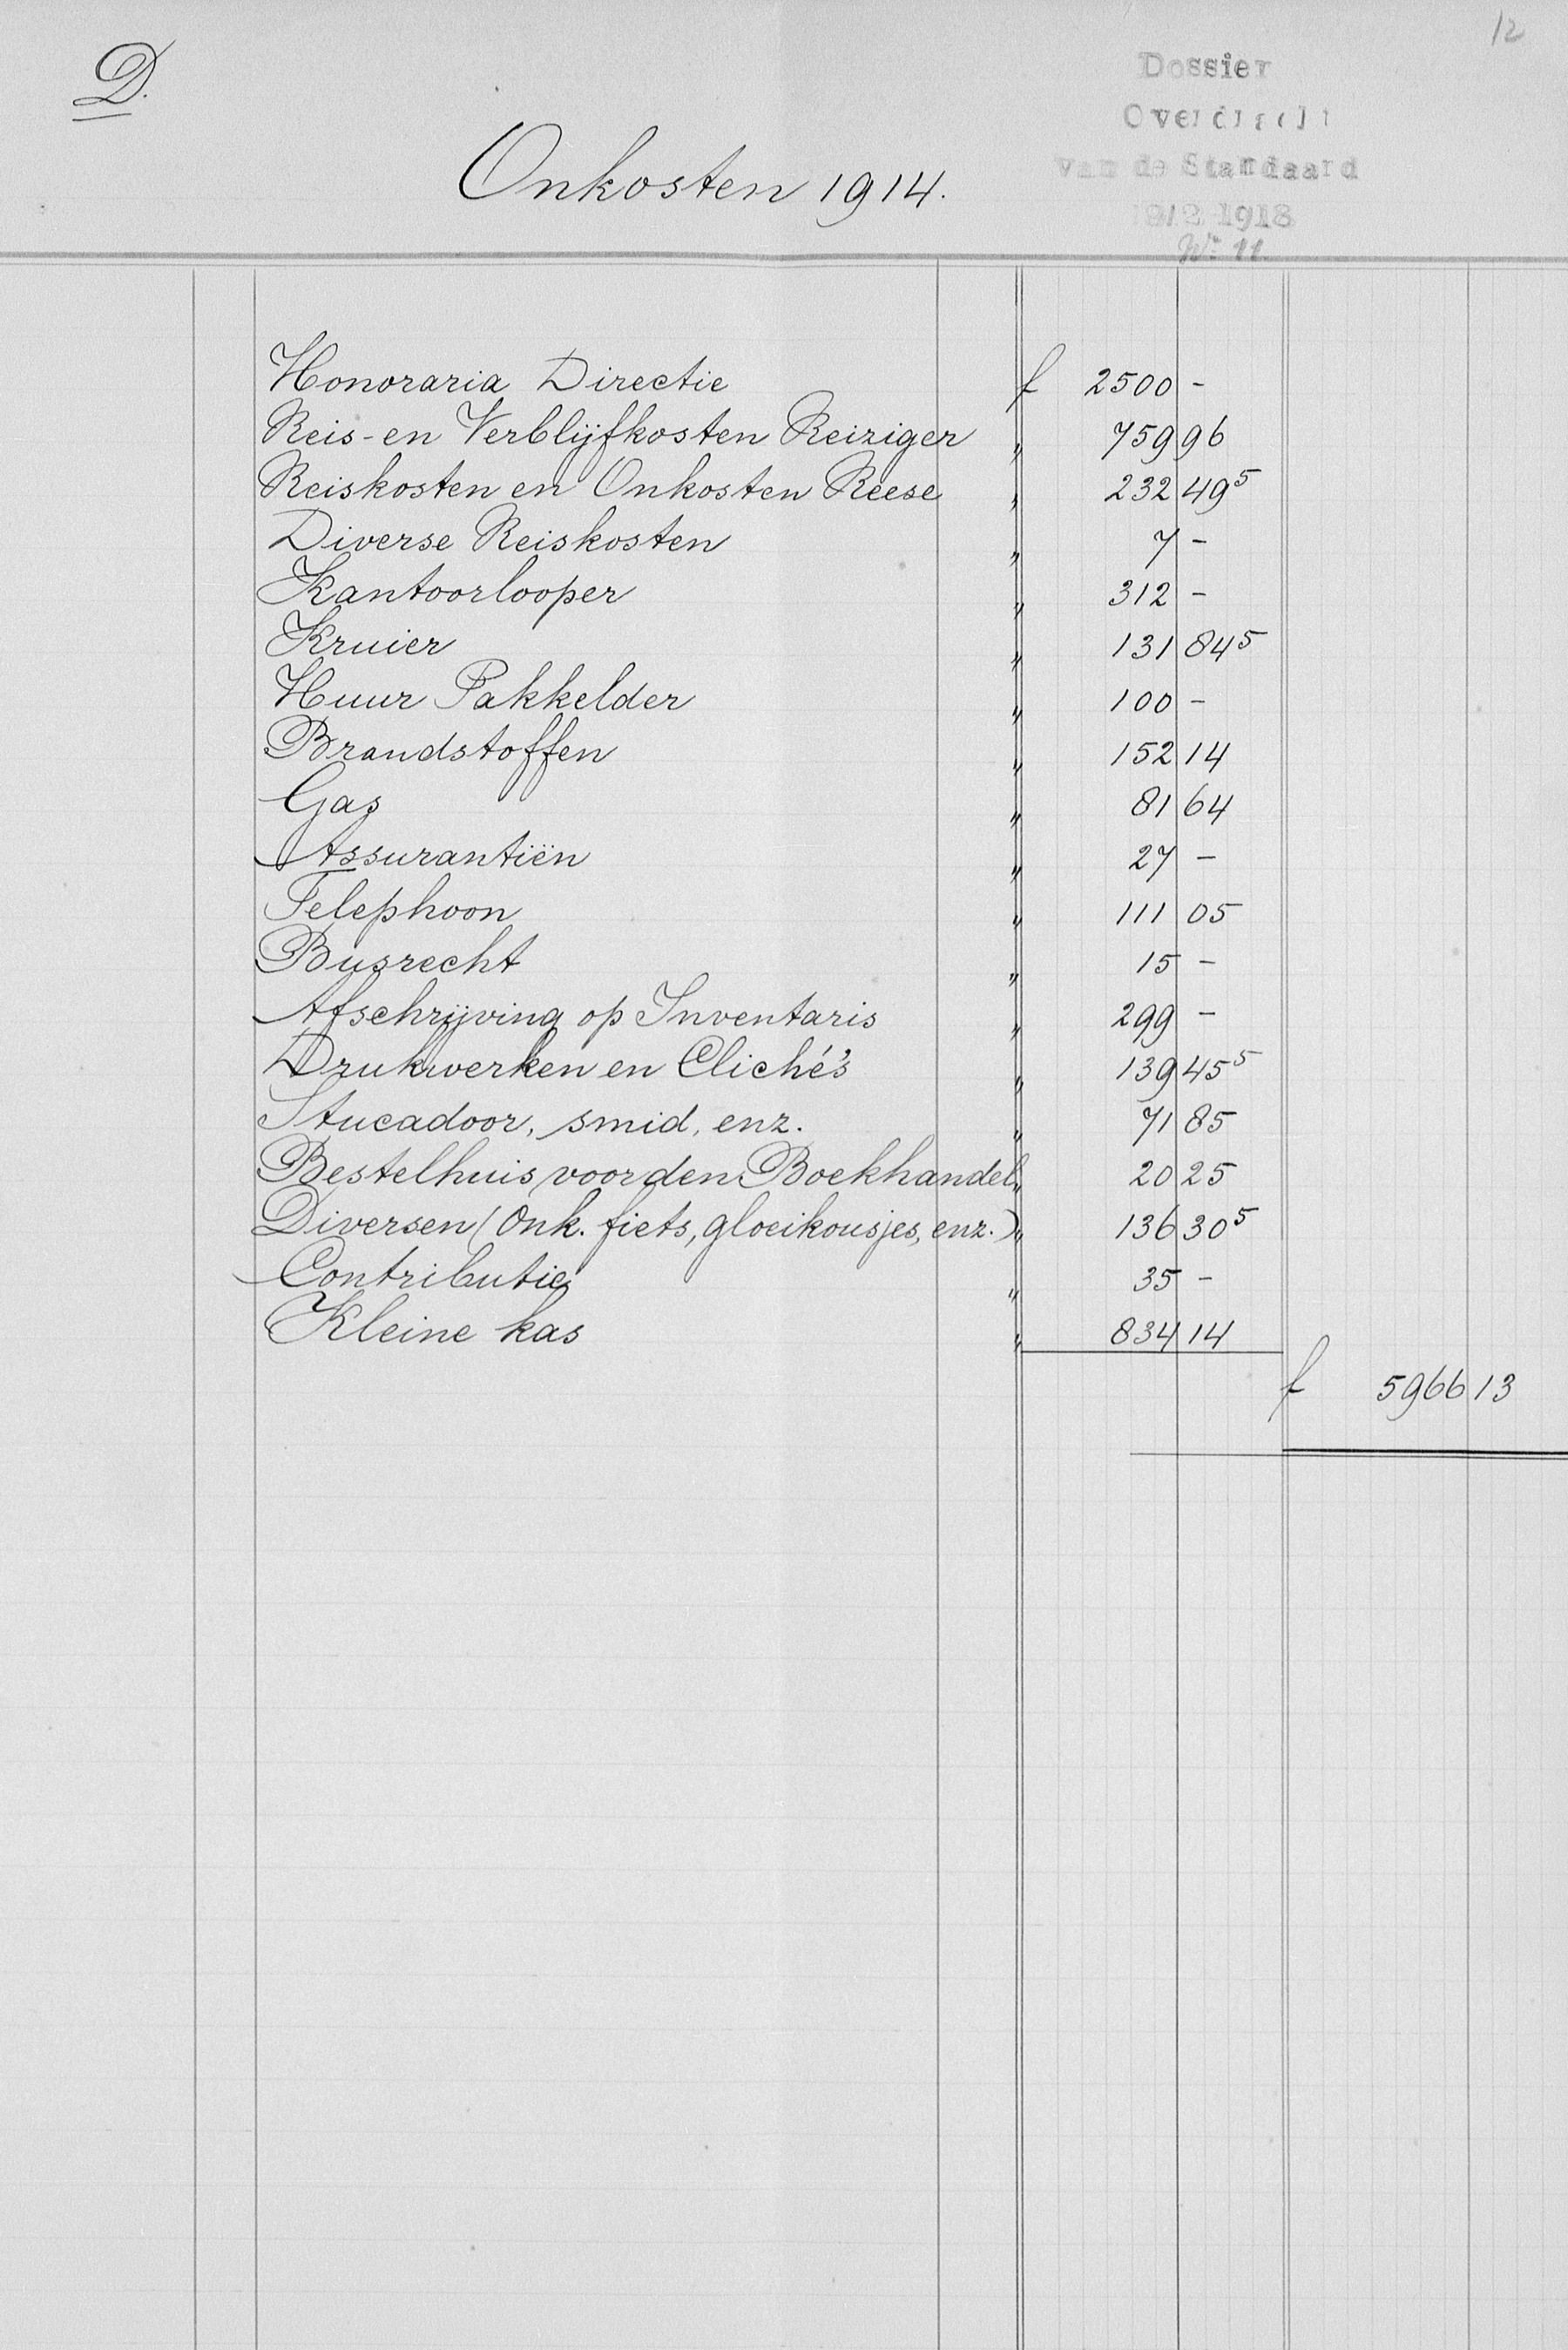 12
D.
Dossier
Overdracht
van de Standaard
1912-1918
No 11.
Onkosten 1914.
Honoraria Directie f 2500 -
Reis- en Verblijfkosten Reiziger " 759 96
Reiskosten en Onkosten Reese " 232 49⁵
Diverse Reiskosten " 7 -
Kantoorlooper " 312 -
Kruier " 131 84⁵
Huur Pakkelder " 100 -
Brandstoffen " 152 14
Gas " 81 64
Assurantiën " 27 -
Telephoon " 111 05
Busrecht " 15 -
Afschrijving op Inventaris " 299 -
Drukwerken en Cliché's " 139 45⁵
Stucadoor, smid, enz. " 71 85
Bestelhuis voor den Boekhandel " 20 25
Diversen (Onk. fiets, gloeikousjes, enz.) " 136 30⁵
Contributie " 35 -
Kleine kas " 834 14
f 5966 13